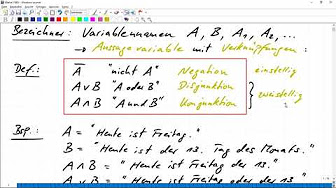 Bezeichner: Variablennamen A, B, A₁, A₂, ...
→ Aussagevariable mit Verknüpfungen:
Def.: A̅ "nicht A" Negation einstellig
A ∨ B "A oder B" Disjunktion
A ∧ B "A und B" Konjunktion } zweistellig
Bsp.: A = "Heute ist Freitag."
B = "Heute ist der 13. Tag des Monats."
A ∧ B = "Heute ist Freitag der 13."
A ∨ B = "Heute ist der 13.